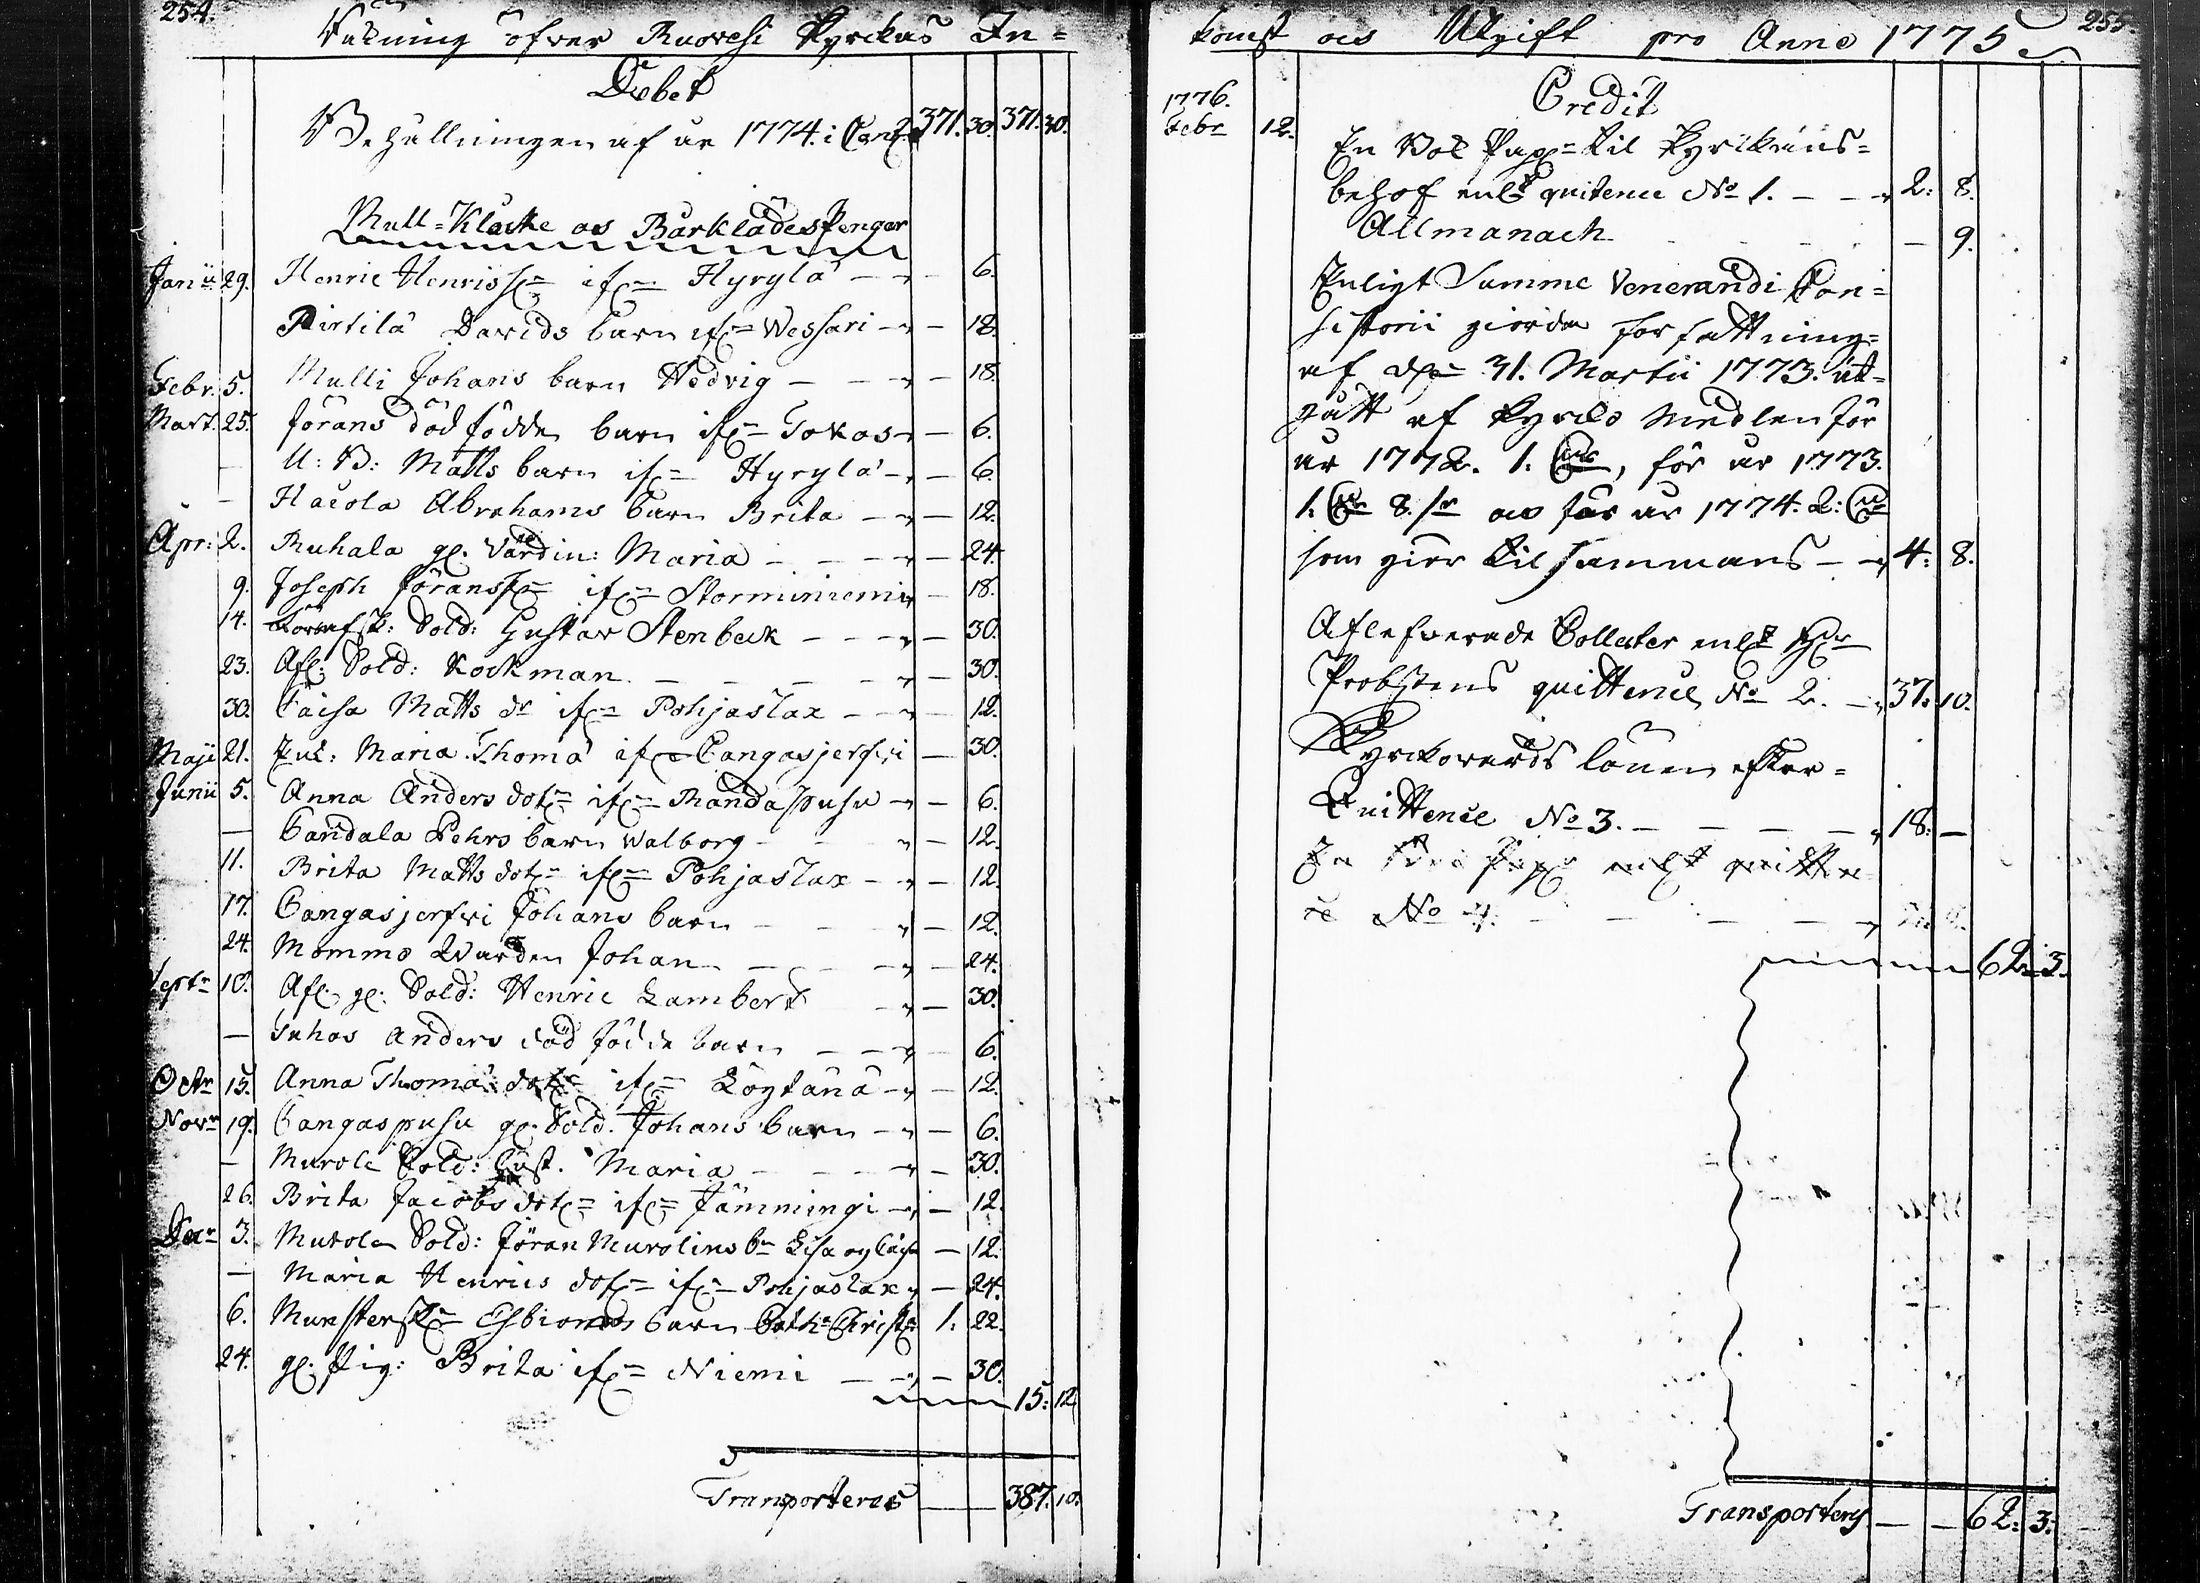 254.
Räkning öfver Ruovesi Kyrckas In=
Debet
Behållningen af år 1774. i Cass 371. 30. 371. 30.
Mull=Klocke och Bårklädes Penger
Janii 29. Henric Henriss: ifr: Hyrylä — 6.
Pirtilä Davids barn ifr: Wessari — 18.
Febr. 5. Mulli Johans barn Hedvig — 18.
Mart. 25. Jörans död födde barn ifr: Tokas — 6.
— U: B: Matts barn ifr: Hyrylä — 6.
— Hacola Abrahams barn Brita — 12.
Apr: 2. Ruhala gl. Värdin: Maria — 24.
9. Joseph Jöranss: ifr: Storminiemi — 18.
14. Sold: Gustav Stenbeck — 30.
23. Afl: Sold: Kockman — 30.
30. Caisa Matts dr ifr: Pohjaslax — 12.
Maji 21. Enk: Maria Thoma ifr: Cangasjerfvi — 30.
Junii 5. Anna Anders dotr: ifr: Randaspusu — 6.
— Candala Pehrs barn Walborg — 12.
11. Brita Matts dotr: ifr: Pohjaslax — 12.
17. Cangasjerfvi Johans barn — 12.
24. Mommo Värden Johan — 24.
Septr 10. Afl. gl. Sold: Henric Lambert — 30.
— Suhas Anders död födde barn — 6.
Octr 15. Anna Thoma dotr: ifr: Löytänä — 12.
Novr 19. Cangaspusu gl. Sold. Johans barn — 6.
— Murole Sold: Hust. Maria — 30.
26. Brita Jacobs dotr: ifr: Jämmingi — 12.
Decr 3. Murole Sold: Jöran Murolins bn Lisa og Caisa — 12.
— Maria Henrics dotr: ifr: Pohjaslax — 24.
6. Munsterskr: Esbiorns barn Cath: Christ: 1. 22.
24. gl. Pig: Brita ifr: Niemi — 30.
15: 12
Transporteras — 387. 10.
255.
komst och Utgift pro Anno 1775
Credit
1776.
Febr 12. En Bok Papp: til Kyrckans=
behof enlt quitence No 1. — 2: 8.
Allmanach — 9.
Enligt Summe Venerandi Con=
sistorii giorda författning=
af den 31. Martii 1773. ut=
gått af Kyrcko Medlen för
år 1772. 1. dlr, för år 1773.
1. dlr 8. sr och för år 1774. 2: dlr
som giör til sammans — 4: 8.
Aflefvererade Collecter enlt Hr
Probstens quittence No 2. — 37. 10.
Kyrckovärds lönen efter=
Quittence No 3. — 18. —
quitten
ce No 4. —
62: 3.
Transporters — 62: 3: